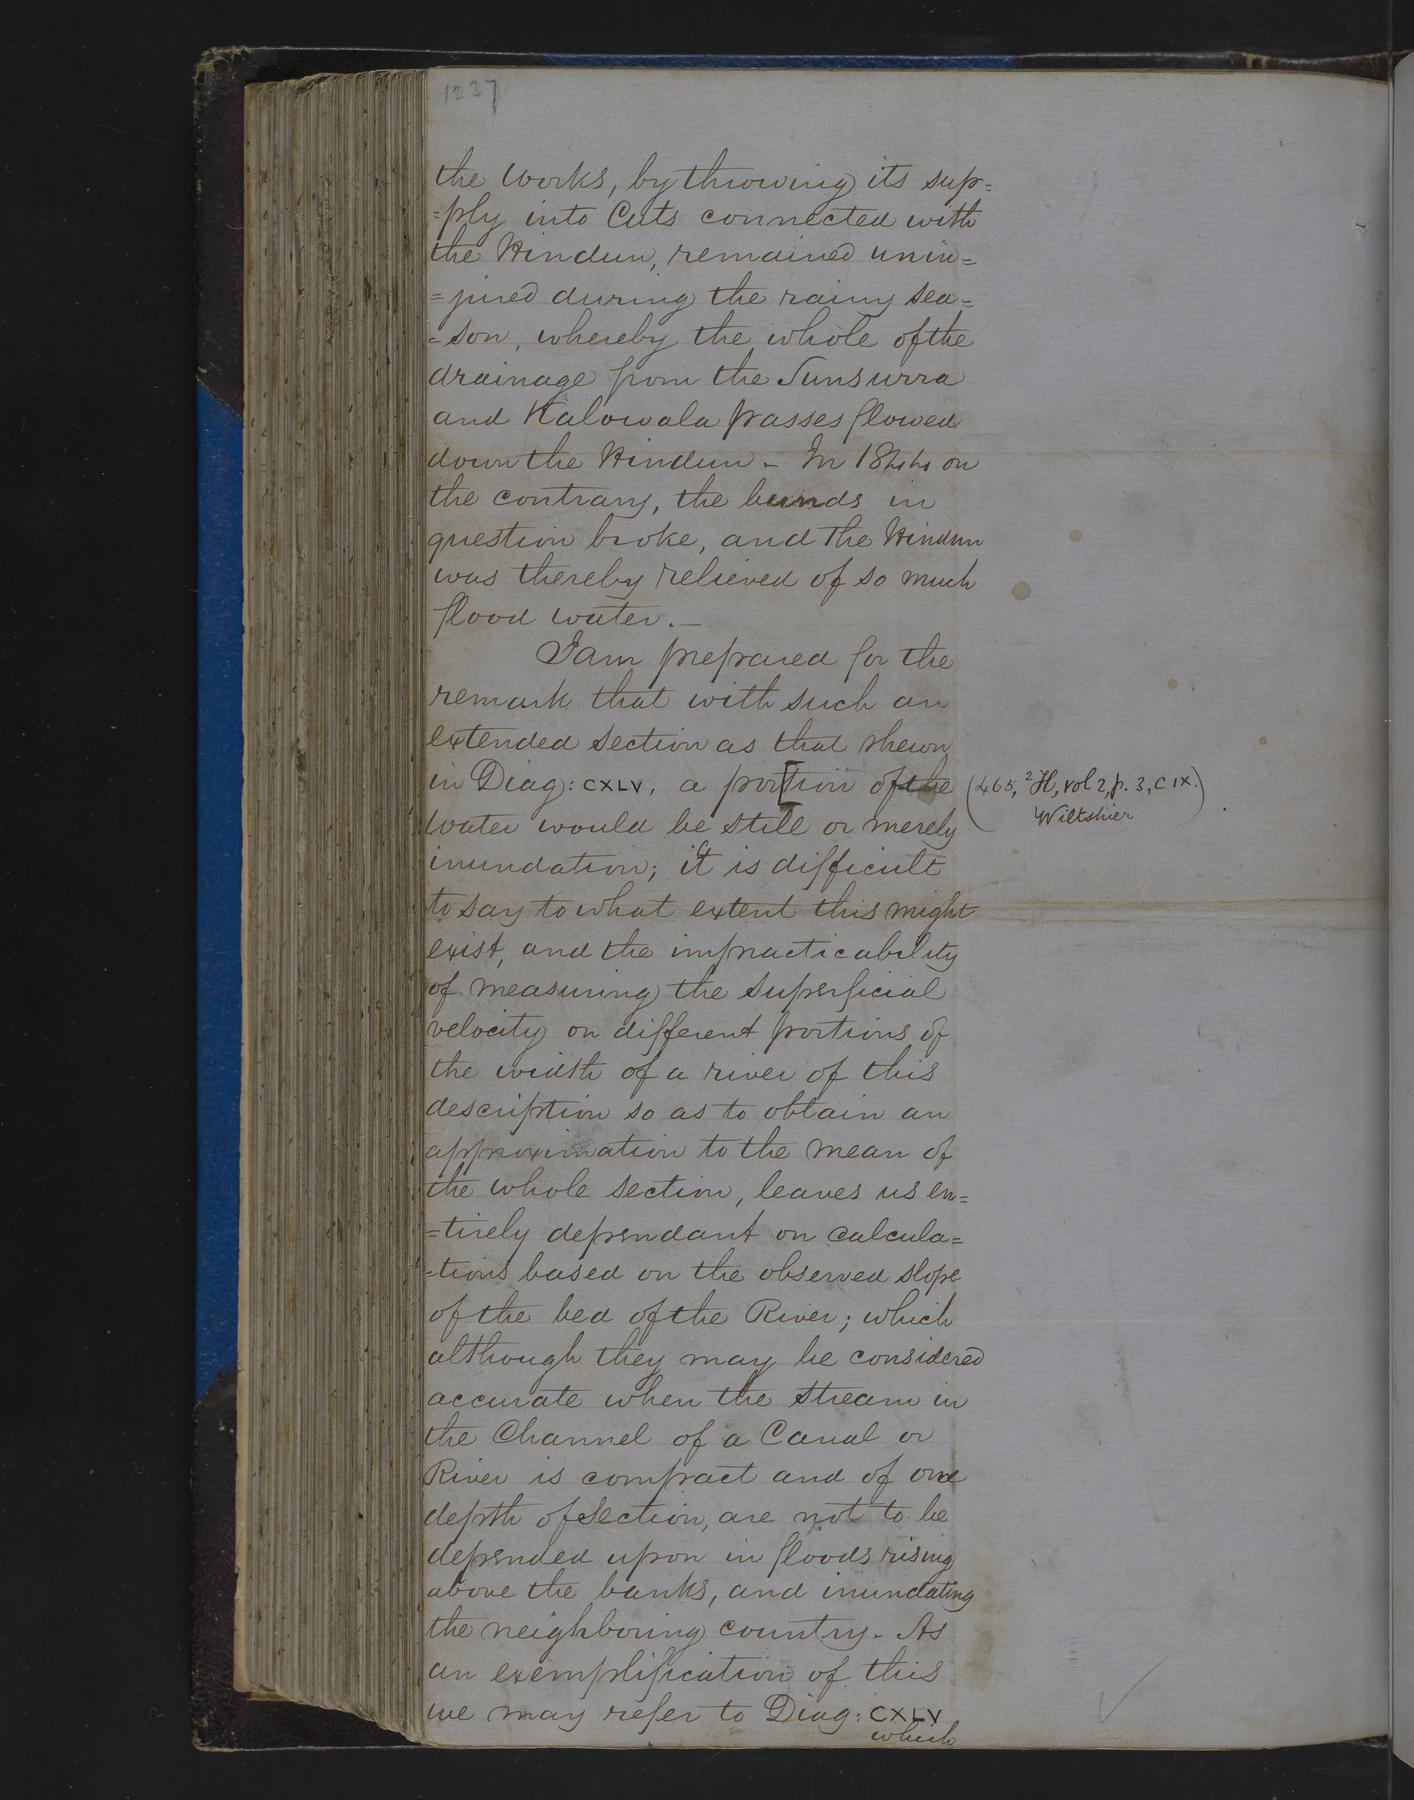 1237
the works, by throwing its sup=
=ply into Cuts connected with
the Hindun, remained unin=
=jured during the rainy sea=
=son, whereby the whole of the
drainage from the Sunsurra
and Kalowala passes flowed
down the Hindun - In 1844 on
the contrary, the bunds in
question broke, and the Hindun
was thereby relieved of so much
flood water.—
I am prepared for the
remark that with such an
extended section as that shewn
in Diag: CXLV, a por[tion of the
(465, 2H, vol 2, p. 3, CIX.
Wiltshier)
water would be still or merely
inundation; it is difficult
to say to what extent this might
exist, and the impracticability
of measuring the superficial
velocity on different portions of
the width of a river of this
description so as to obtain an
approximation to the mean of
the whole section, leaves us en=
=tirely dependant on calcula=
=tions based on the observed slope
of the bed of the River; which
although they may be considered
accurate when the stream in
the Channel of a Canal or
River is compact and of one
depth of Section, are not to be
depended upon in floods rising
above the banks, and inundating
the neighboring country - As
an exemplification of this
we may refer to Diag: CXLV
which